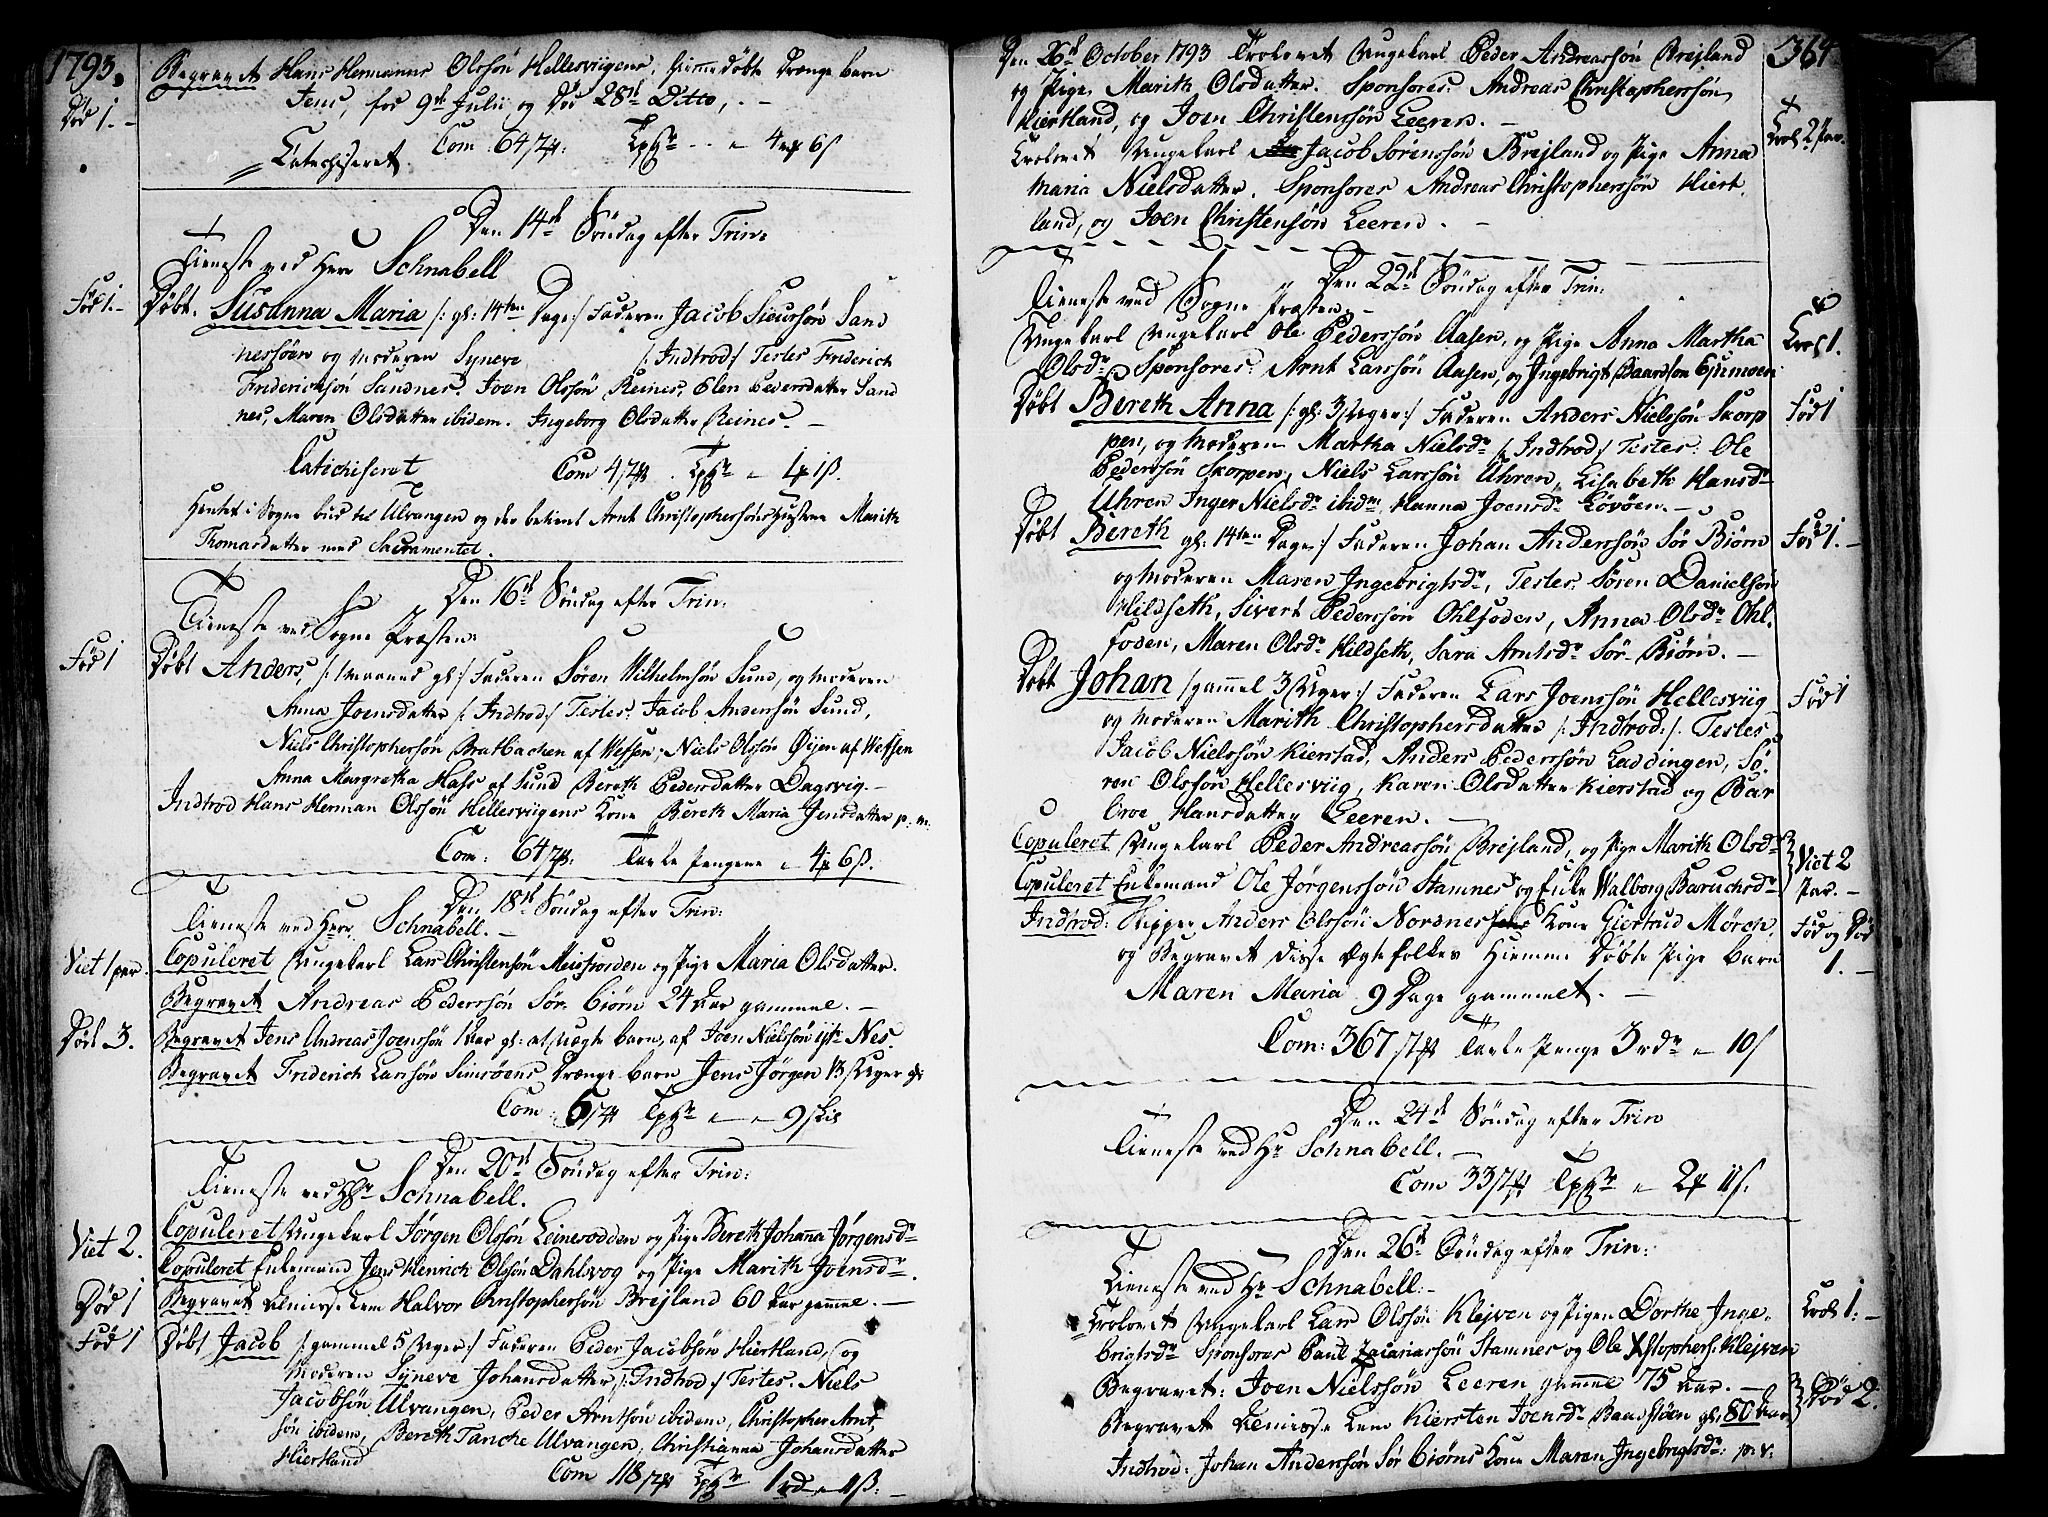 1793.
Begravet Hans Hermanns Olssøn Hellesviigens, hiemmedøbte Drænge barn
Jens, fød 9de Julii og Død 28de Ditto, . -
Død 1. -
Catechiseret. Com: 64 4 6 ß
Den 14de Søndag efter Trin:
Tieneste ved Herr Schnabell
Fød 1. -
Døbt. Susanna Maria /: gl: 14ten Dage :/ Faderen Jacob Siurssøn Sand
nessøen og Moderen Syneve /: Indtrod :/ Testes Friderich
Friderichsøn Sandnes. Joen Olssøn Reines, Elen Pedersdatter Sand
nes, Maren Olsdatter ibidem. Ingeborg Olsdatter Reines. -
Catichiseret Com 47 1 1ß.
Hentet i Sogne bud til Ulvangen og der betient Arnt Christophersøns Hustrue Marith
Thomasdatter med Sacramentet.
Den 16de Søndag efter Trin:
Tieneste ved Sogne Præsten
Fød 1
Døbt Anders, /: 1 Maaned gl :/ Faderen Søren Wilhelmsøn Sund, og Moderen
Anna Joensdatter /: Indtrod :/ Testes: Jacob Andersøn Sund,
Niels Christophersøn Bratbachen af Wefsen, Niels Olssøn Øyen af Wefsen
Anna Margretha Hass af Sund Bereth Pedersdatter Dagsvig. -
Indtrod Hans Herman Olssøn Hellesviigens Kone Bereth Maria Jensdatter p: m:
Com: 64 Tavle Pengene 4 6 ß.
Den 18de Søndag efter Trin:
Tieneste ved Herr Schnabell. -
Viet 1 par.
Copuleret Ungekarl Lars Christensøn Meisfiorden og Pige Maria Olsdatter.
Begravet Andreas Pederssøn Sør Biørn 24 Aar gammel. -
Død 3.
Begravet Jens Andreas Joenssøn 1 Aar gl: et Uægte barn, af Joen Nielssøn Nes.
Begravet Friderich Larssøn Simsøens Drænge barn Jens Jørgen 13 Uger gl:
Com: 6 9 skil
Den 20de Søndag efter Trin:
Tieneste ved Hr Schnabell.
Viet 2.
Copuleret Ungekarl Jørgen Olssøn Leinesodden og Pige Bereth Johanna Jørgensdr
Copuleret Enkemand Jens Henrich Olssøn Dahlsvog og Pige Marith Joensdr.
Død 1
Begravet Almisse Lem Halvor Christophersøn Brejland 60 Aar gammel. -
Fød 1
Døbt Jacob /: gammel 5 Uger :/ Faderen Peder Jacobsøn Hiertland, og
Moderen Syneve Johansdatter /: Indtrod :/ Testes. Niels
Jacobsøn Ulvangen, Peder Arntsøn ibidem, Christopher Arnt
søn ibidem, Bereth Tanche Ulvangen, Christianna Johansdatter
Hiertland
Com 118 1 rd 1ß. -
364
Den 26de October 1793 Trolovet Ungekarl Peder Andreassøn Brejland
og Pige, Marith Olsdatter. Sponsores: Andreas Christophersøn
Hiertland, og Joen Christenssøn Leeren. -
Trol 2 Par.
Trolovet Ungekarl Jacob Sørenssøn Brejland og Pige Anna
Maria Nielsdatter. Sponsores Andreas Christopherssøn Hiert
land, og Joen Christensøn Leeren. -
Den 22de Søndag efter Trin:
Tieneste ved Sogne Præsten. -
Trol 1.
Ungekarl Ole Pederssøn Aasen, og Pige Anna Martha
Olsdr Sponsores: Arnt Larssøn Aasen, og Ingebrigt Baardsøn
Fød 1
Døbt Bereth Anna /: gl: 3 Uger :/ Faderen Anders Nielssøn Skorp
pen, og Moderen Martha Nielsdr /: Indtrod :/ Testes: Ole
Pederssøn Skorpen, Niels Larssøn Uhren, Lisabeth Hansdr
Uhren Inger Nielsdr ibidm, Hanna Joensdr Løvøen. -
Fød 1. -
Døbt Bereth gl: 14ten Dage :/ Faderen Johan Anderssøn Sør Biørn
og Moderen Maren Ingebrigtsdr, Testes: Søren Danielsøn
Hildseth, Sivert Pederssøn Ohlfoden, Anna Olsdr Ohl,
foden, Maren Olsdr Hildseth, Sara Arntsdr Sør Biørn. -
Fød 1
Døbt Johan /: gammel 3 Uger :/ Faderen Lars Joenssøn Hellesviig
og Moderen Marith Christophersdatter /: Indtrod :/ Testes
Jacob Nielssøn Kierstad, Anders Pederssøn Laddingen, Sø,
ren Olssøn Hellesviig, Karen Olsdatter Kierstad og Bar
broe Hansdatter Leeren. -
Copuleret Ungekarl Peder Andreassøn Brejland, og Pige Marith Olsdr
Viet 2
Par. -
Copuleret Enkemand Ole Jørgenssøn Stamnes og Enke Walborg Baruchsdr
Indtrod: Skipper Anders Olssøn Nordnes Kone Giertrud Mørch,
Fød og Død
1. -
og Begravet disse Ægtefolkes Hiemme Døbte Pige barn
Maren Maria 9 Dage gammel. -
Com: 367 Tavle Penge 3 rdr 10 ß
Den 24de Søndag efter Trin
Tieneste ved Hr Schnabell. -
Com 33 2 11 ß.
Den 26de Søndag efter Trin:
Tieneste ved Hr Schnabell. -
Trol 1. -
Trolovet Ungekarl Lars Olssøn Klejven og Pigen Dorthe Inge,
brigtsdr Sponsores Paul Zacariassøn Stamnes og Ole Xstophers: Klejven
Begravet: Joen Nielssøn Leeren gammel 75 Aar. -
Død 2.
Begravet Almisse Lem Kiersten Joensdr Baadstøen gl: 80 Aar
Indtrod: Johan Anderssøn Sør Biørns Kone Maren Ingebrigtsdr: p: v: